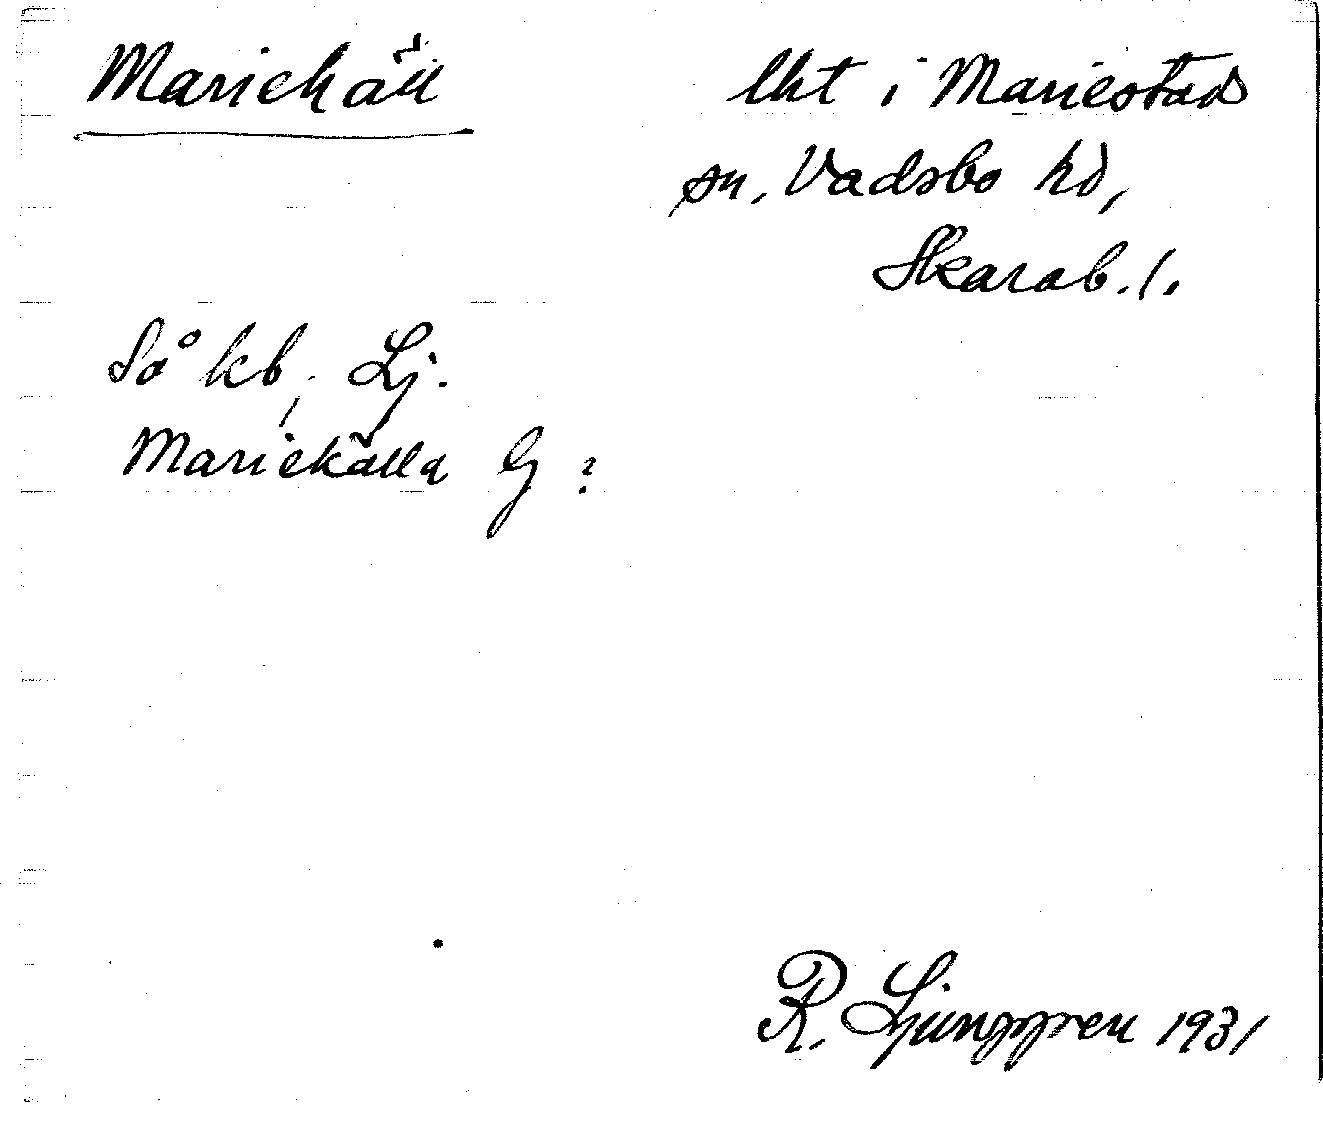 Mariehäll
lht i Mariestad
sn, Vadsbo hd,
Skarab. l.
Så kb, Lj.
Mariekälla G ?
R. Ljunggren 1931